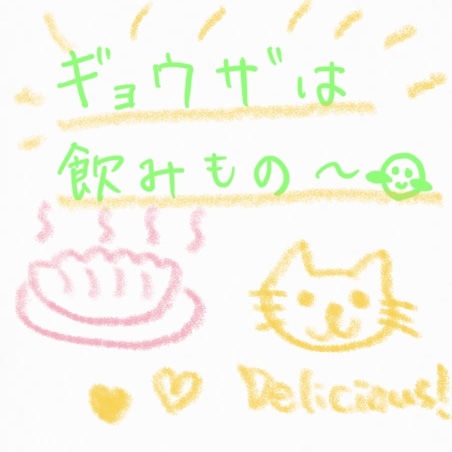 ギョウザは
飲みもの〜
Delicious!